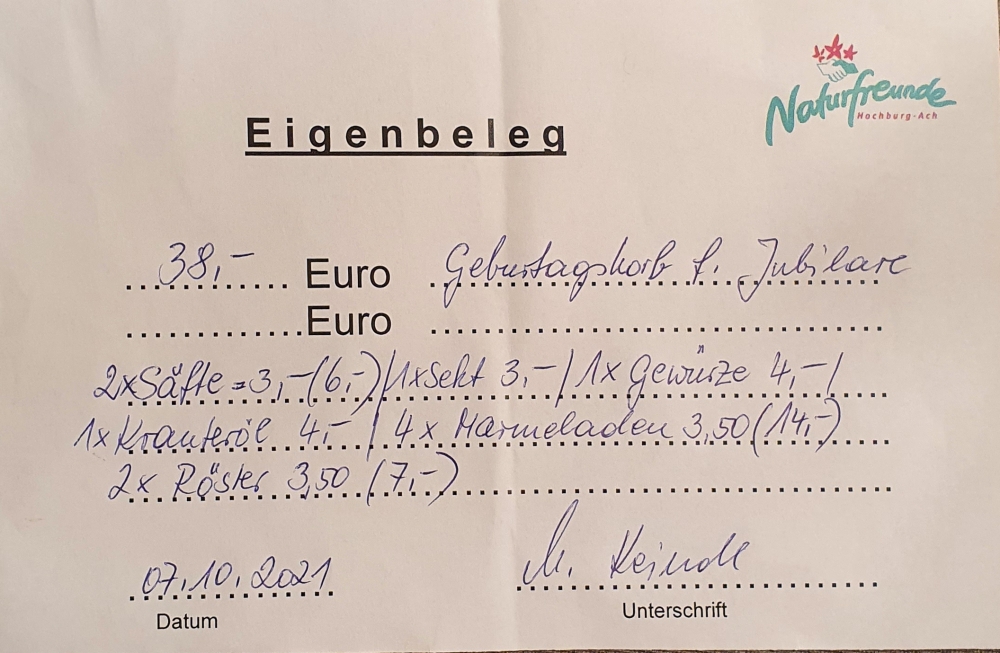 Naturfreunde
Hochburg-Ach
Eigenbeleg
38,- Euro Geburtagskorb f. Jubilare
Euro
2xSäfte = 3,- (6,-) / 1xSekt 3,- / 1x Gewürze 4,- /
1x Kräuteröl 4,- / 4x Marmeladen 3,50 (14,-)
2x Röster 3,50 (7,-)
07.10.2021 M.
Datum Unterschrift